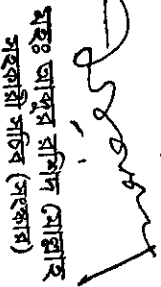 মহঃ আব্দুর রশিদ মোল্লাহ
সহকারী সচিব (সংস্কার)